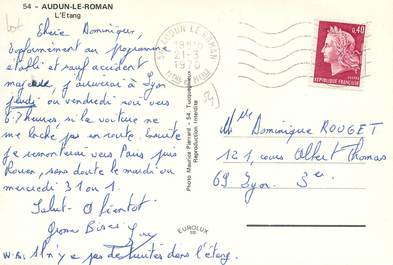 54 - AUDUN-LE-ROMAN
L'Etang
Chère Dominique,
Conformément au programme
établi et sauf accident
majeur, j'arriverai à Lyon
jeudi ou vendredi soir vers
6.7 heures, si la voiture ne
me lâche pas en route. Ensuite
je remonterai vers Paris puis
Rouen, sans doute le mardi ou
mercredi 31 ou 1.
Salut - A bientôt
Grosses Bises Guy
N.B. Il n'y a pas de truites dans l'étang.
Photo Maurice Parrant - 54. Tucquegnieux
Reproduction Interdite
EUROLUX
54 AUDUN LE ROMAN
1970
0,40
REPUBLIQUE FRANÇAISE
Mlle Dominique ROUGET
121, cours Albert Thomas
69 Lyon 3e